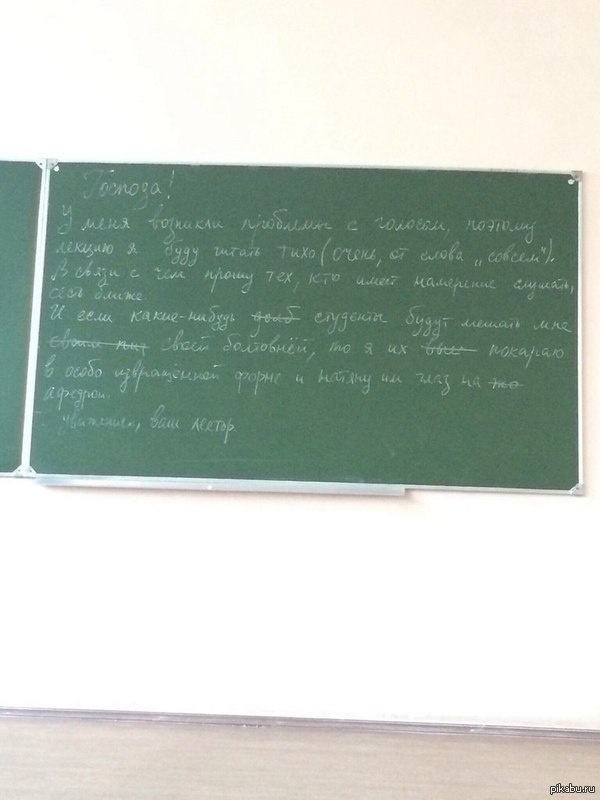 Господа!
У меня возникли проблемы с голосом, поэтому
лекцию я буду читать тихо (очень, от слова „совсем").
В связи с чем прошу тех, кто имеет намерение слушать,
сесть ближе
И если какие-нибудь долб студенты будут мешать мне
своей болтовнёй, то я их покараю
в особо извращённой форме и натяну им глаз на
афедрон.
уважением, ваш лектор
pikabu.ru